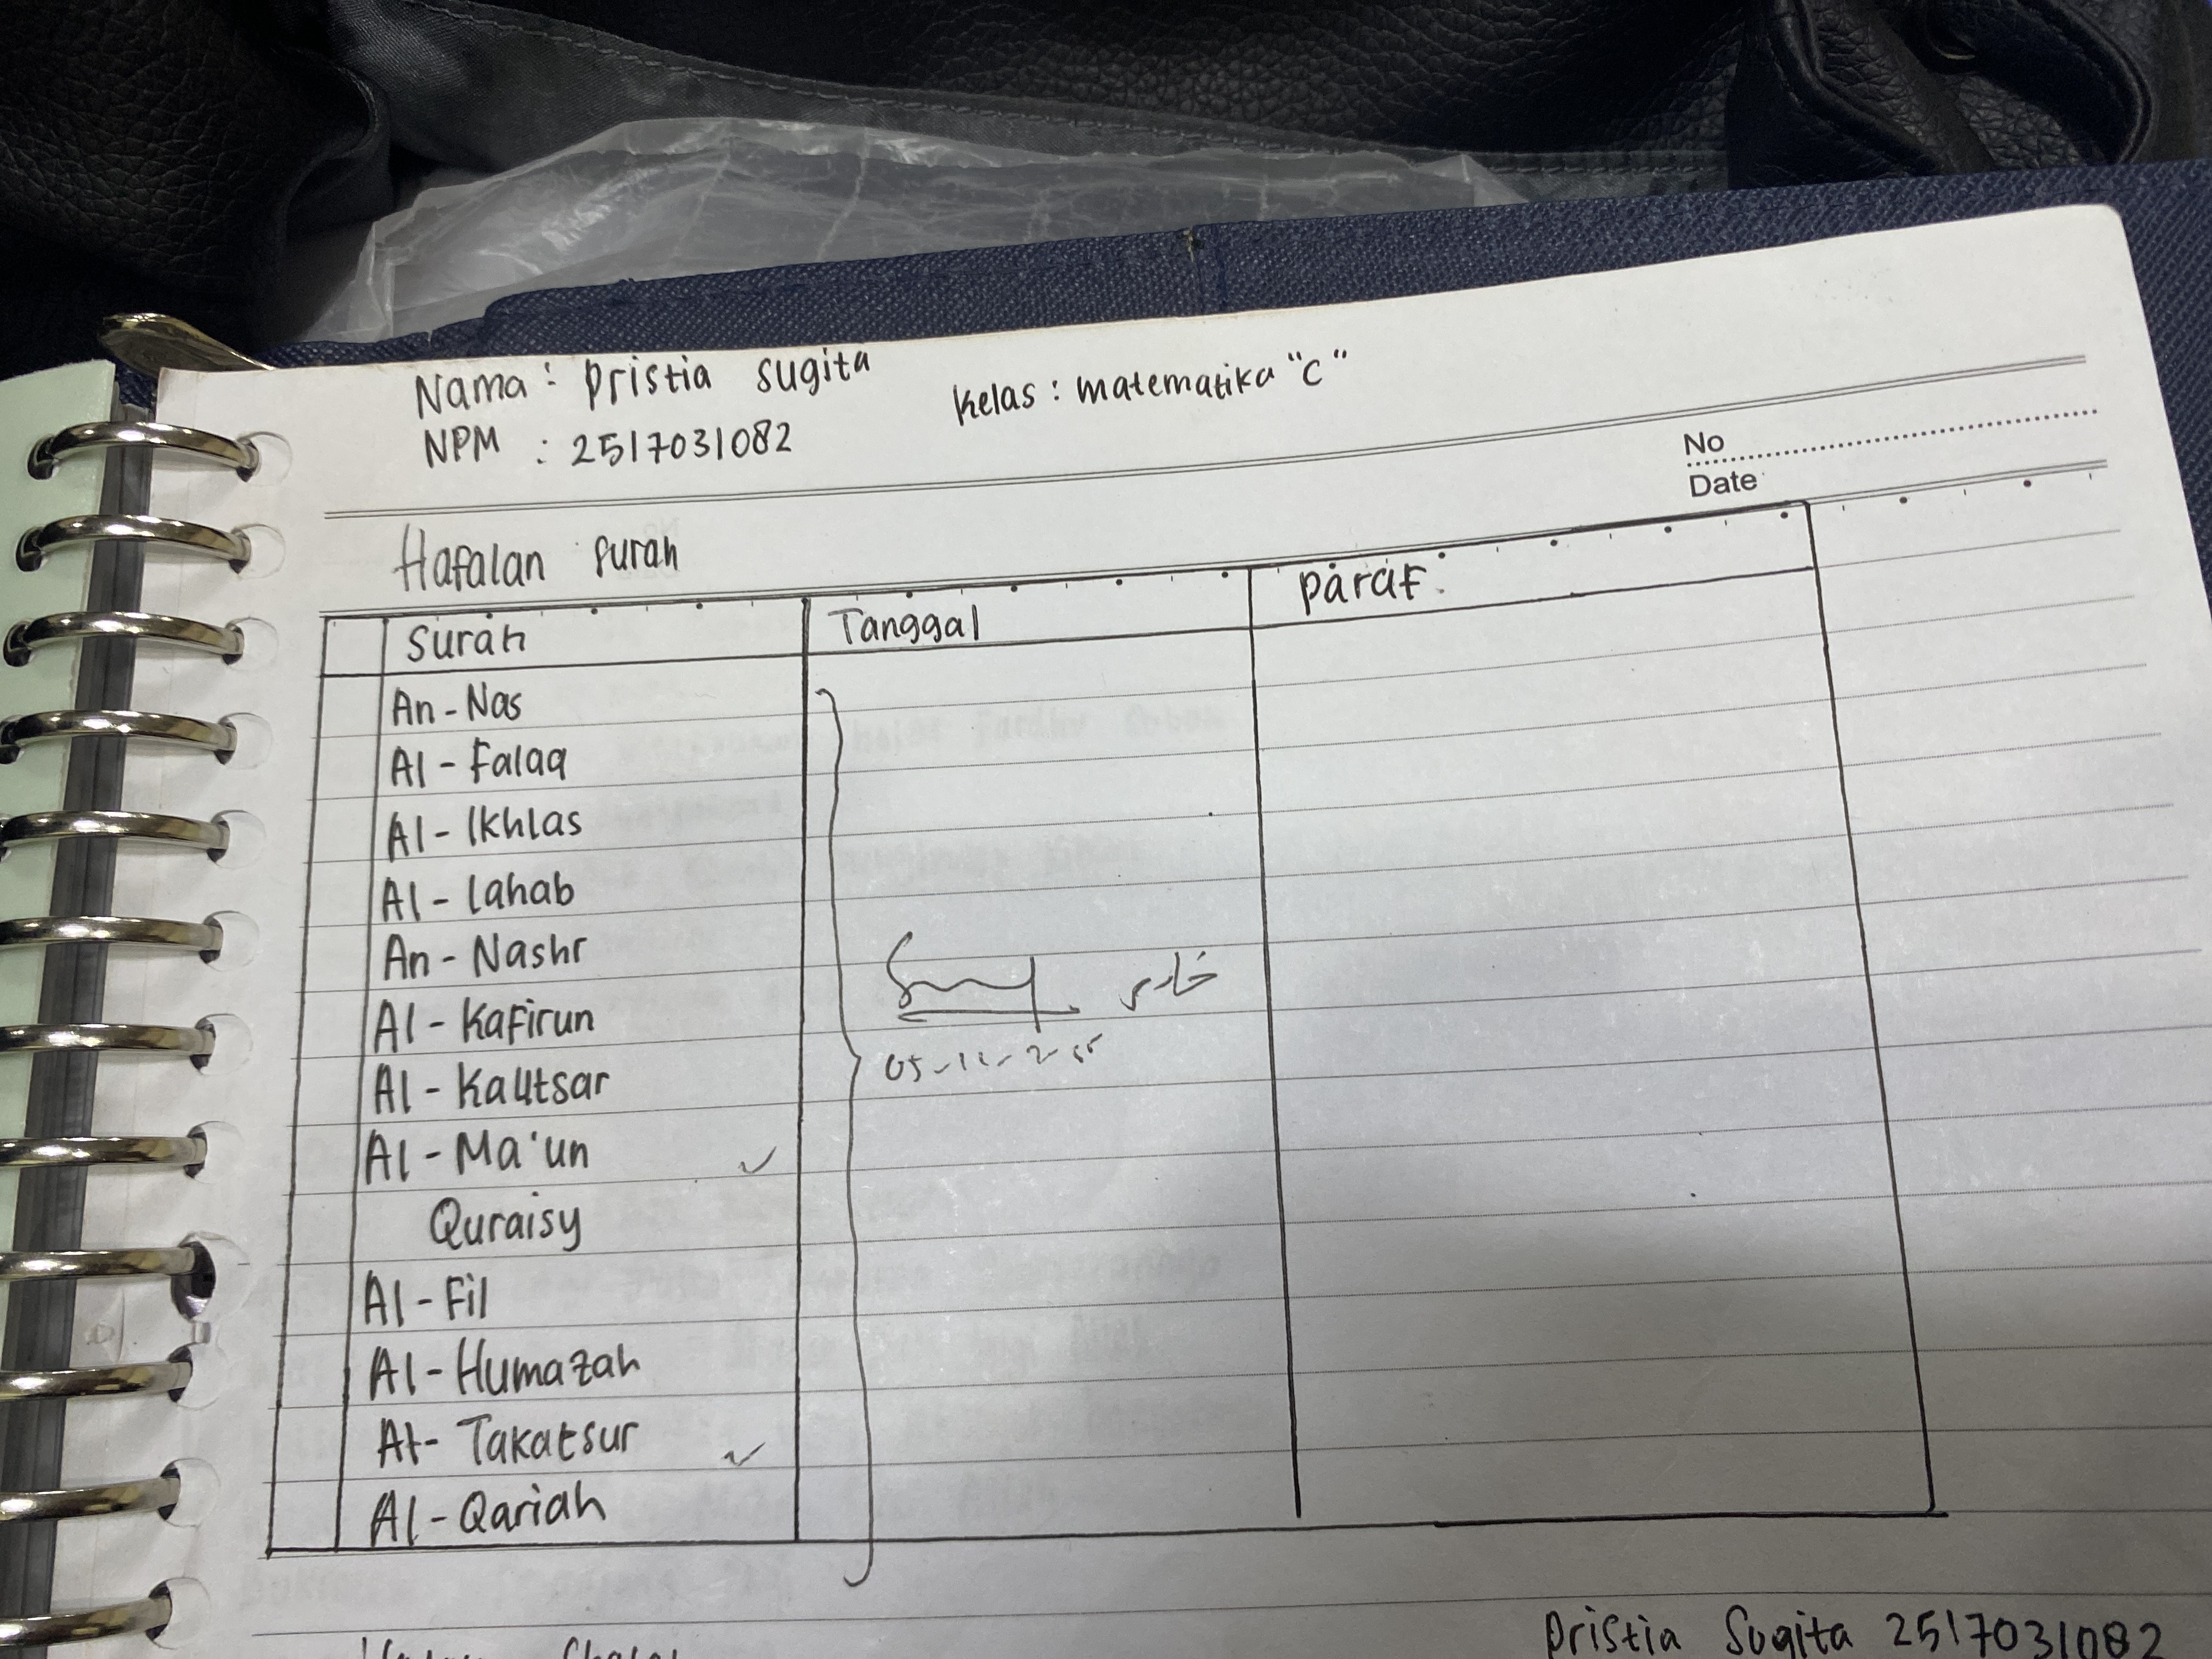 Nama : Pristia Sugita
Kelas : Matematika "C"
NPM : 2517031082
No
Date
Hafalan Surah
Surah Tanggal Paraf
An - Nas
Al - Falaq
Al - Ikhlas
Al - Lahab
An - Nashr
Al - Kafirun
Al - Kautsar
Al - Ma'un ✓
Quraisy
Al - Fil
Al - Humazah
At - Takatsur ✓
Al - Qariah
Pristia Sugita 2517031082